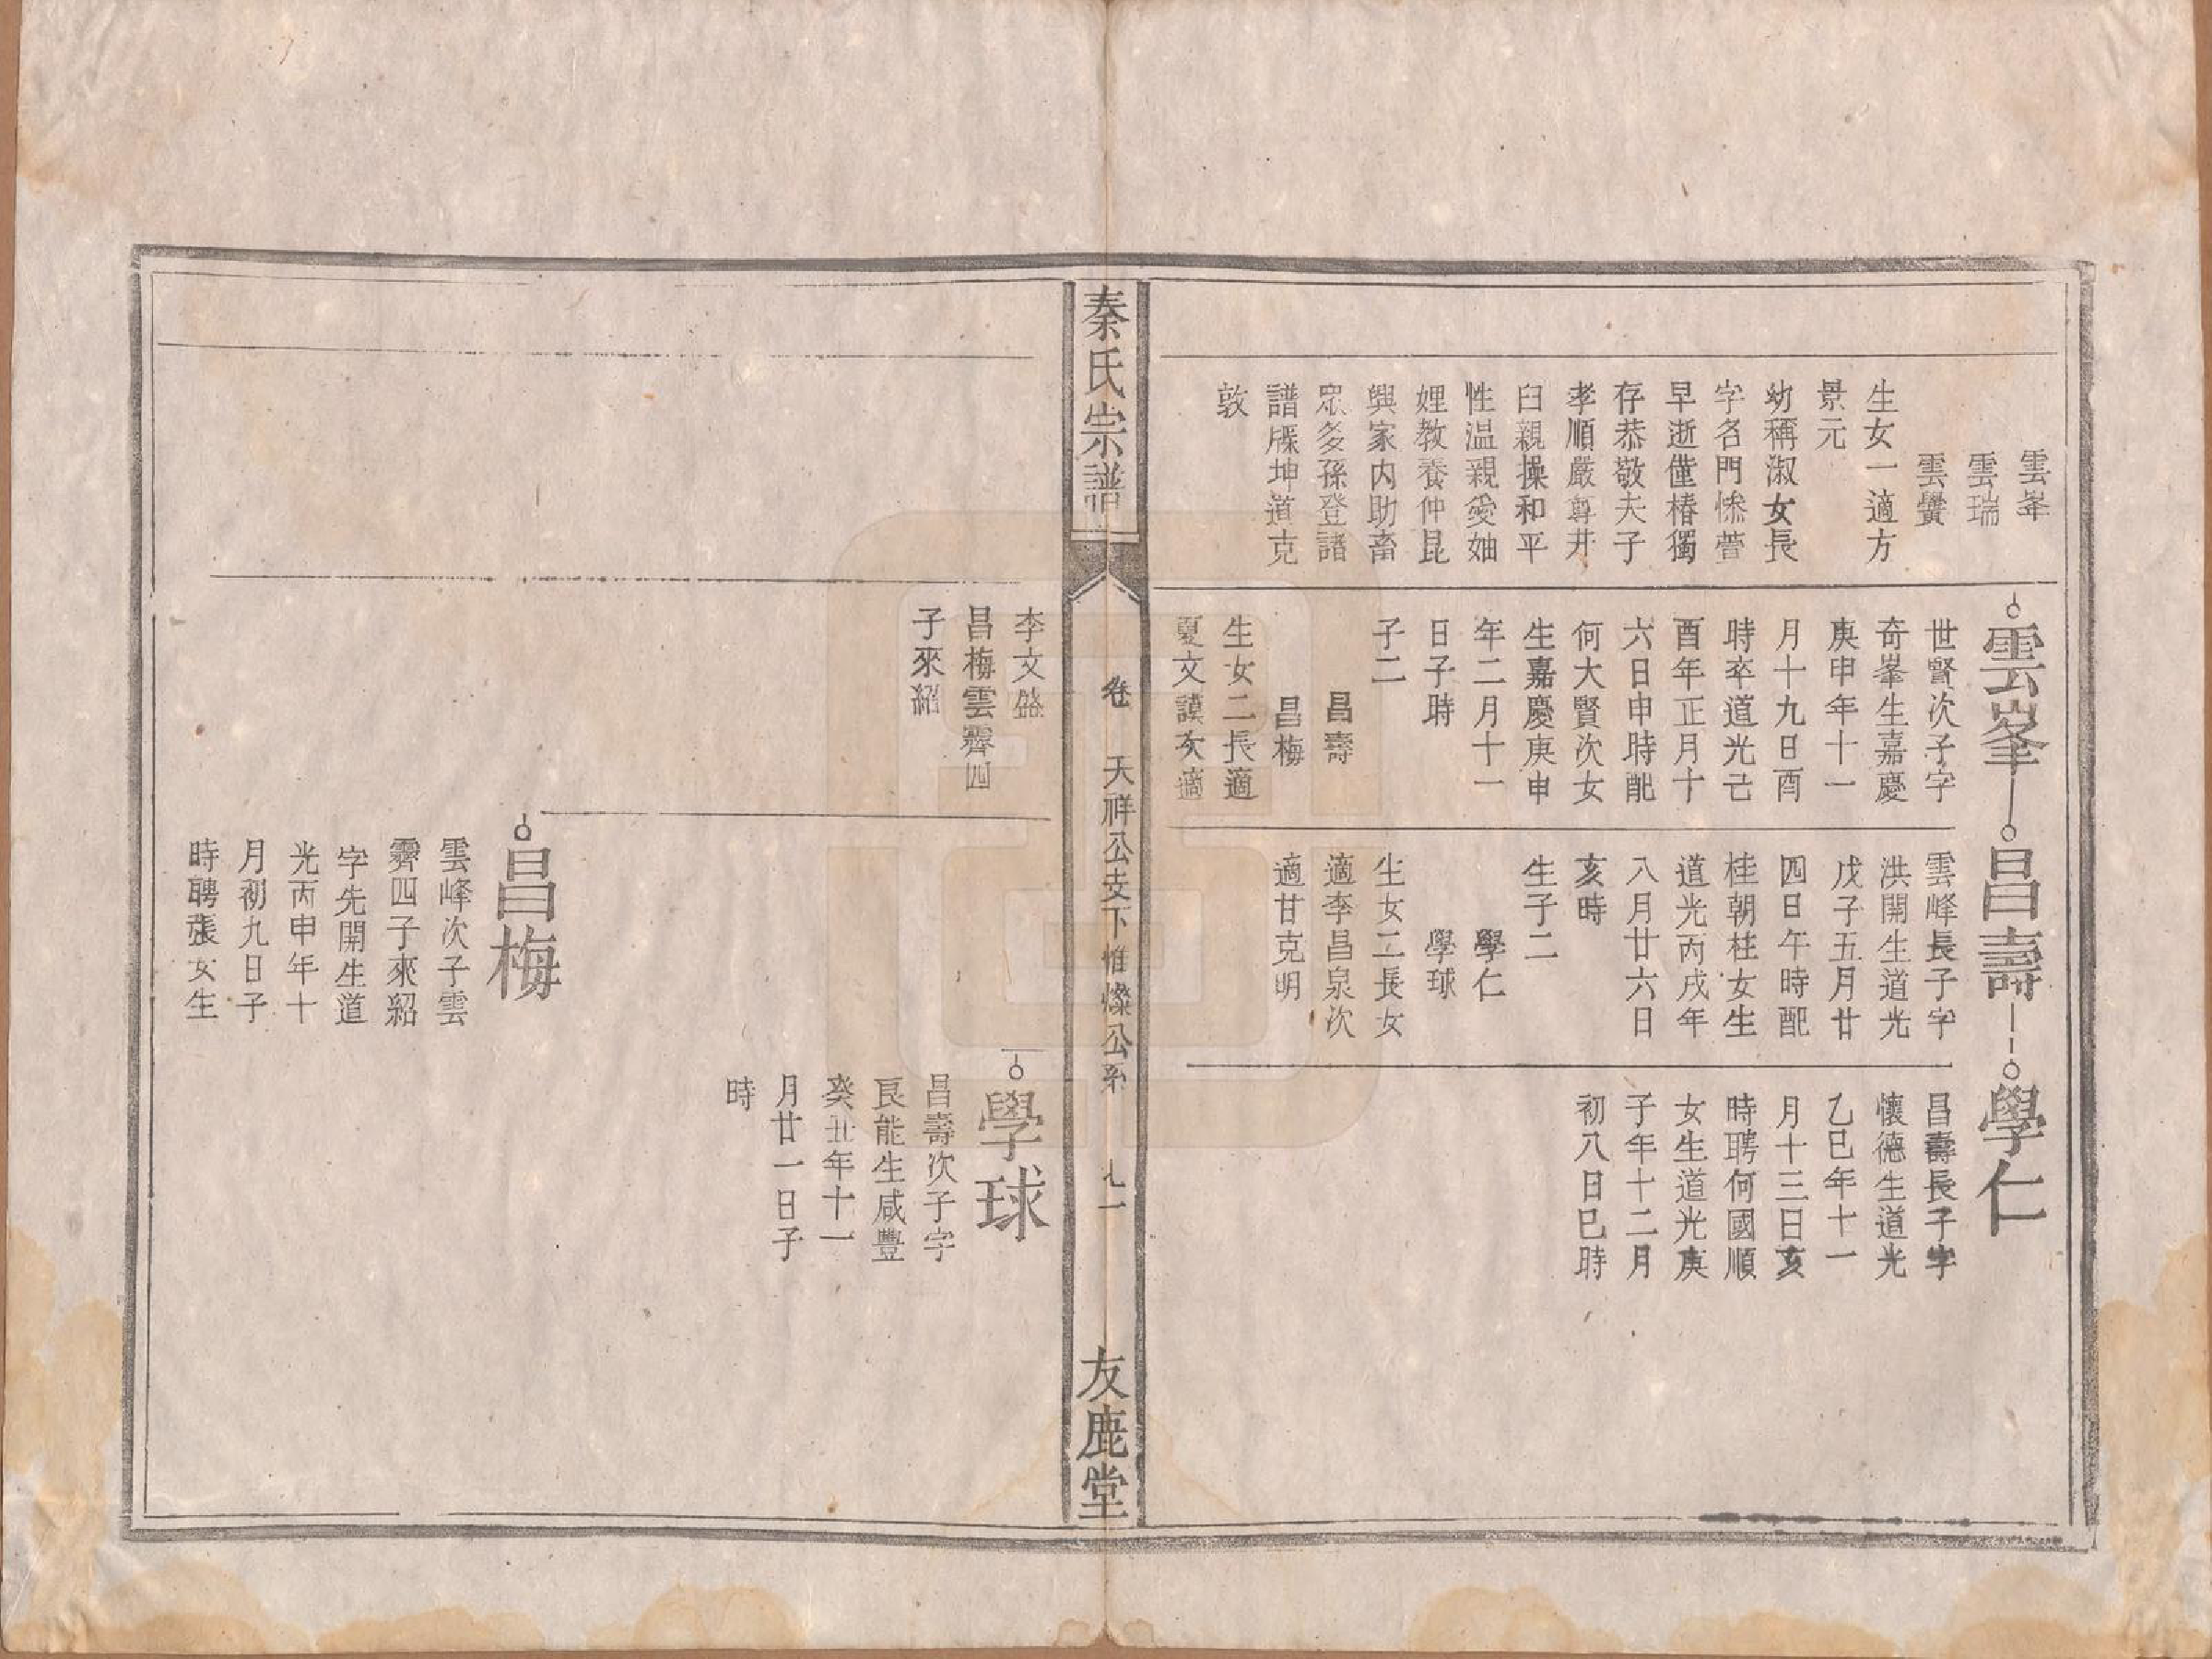 雲峯
雲瑞
雲黌
生女一適方
景元
幼稱淑女長
字名門慘萱
早逝僅椿獨
存恭敬夫子
孝順嚴尊井
臼親操和平
性温親愛妯
娌教養仲昆
興家内助畜
眾多孫登諸
譜牒坤道克
敦
雲峯
世賢次子字
奇峯生嘉慶
庚申年十一
月十九日酉
時卒道光己
酉年正月十
六日申時配
何大賢次女
生嘉慶庚申
年二月十一
日子時
子二
昌壽
昌梅
生女二長適
夏文謨次適
昌壽
雲峰長子字
洪開生道光
戊子五月廿
四日午時配
桂朝柱女生
道光丙戌年
八月廿六日
亥時
生子二
學仁
學球
生女二長女
適李昌泉次
適甘克明
學仁
昌壽長子字
懷德生道光
乙巳年十一
月十三日亥
時聘何國順
女生道光庚
子年十二月
初八日巳時
秦氏宗譜
卷
天祥公支下惟燦公系
九一
友鹿堂
李文盛
昌梅雲霽四
子來紹
學球
昌壽次子字
良能生咸豐
癸丑年十一
月廿一日子
時
昌梅
雲峰次子雲
霽四子來紹
字先開生道
光丙申年十
月初九日子
時聘張女生